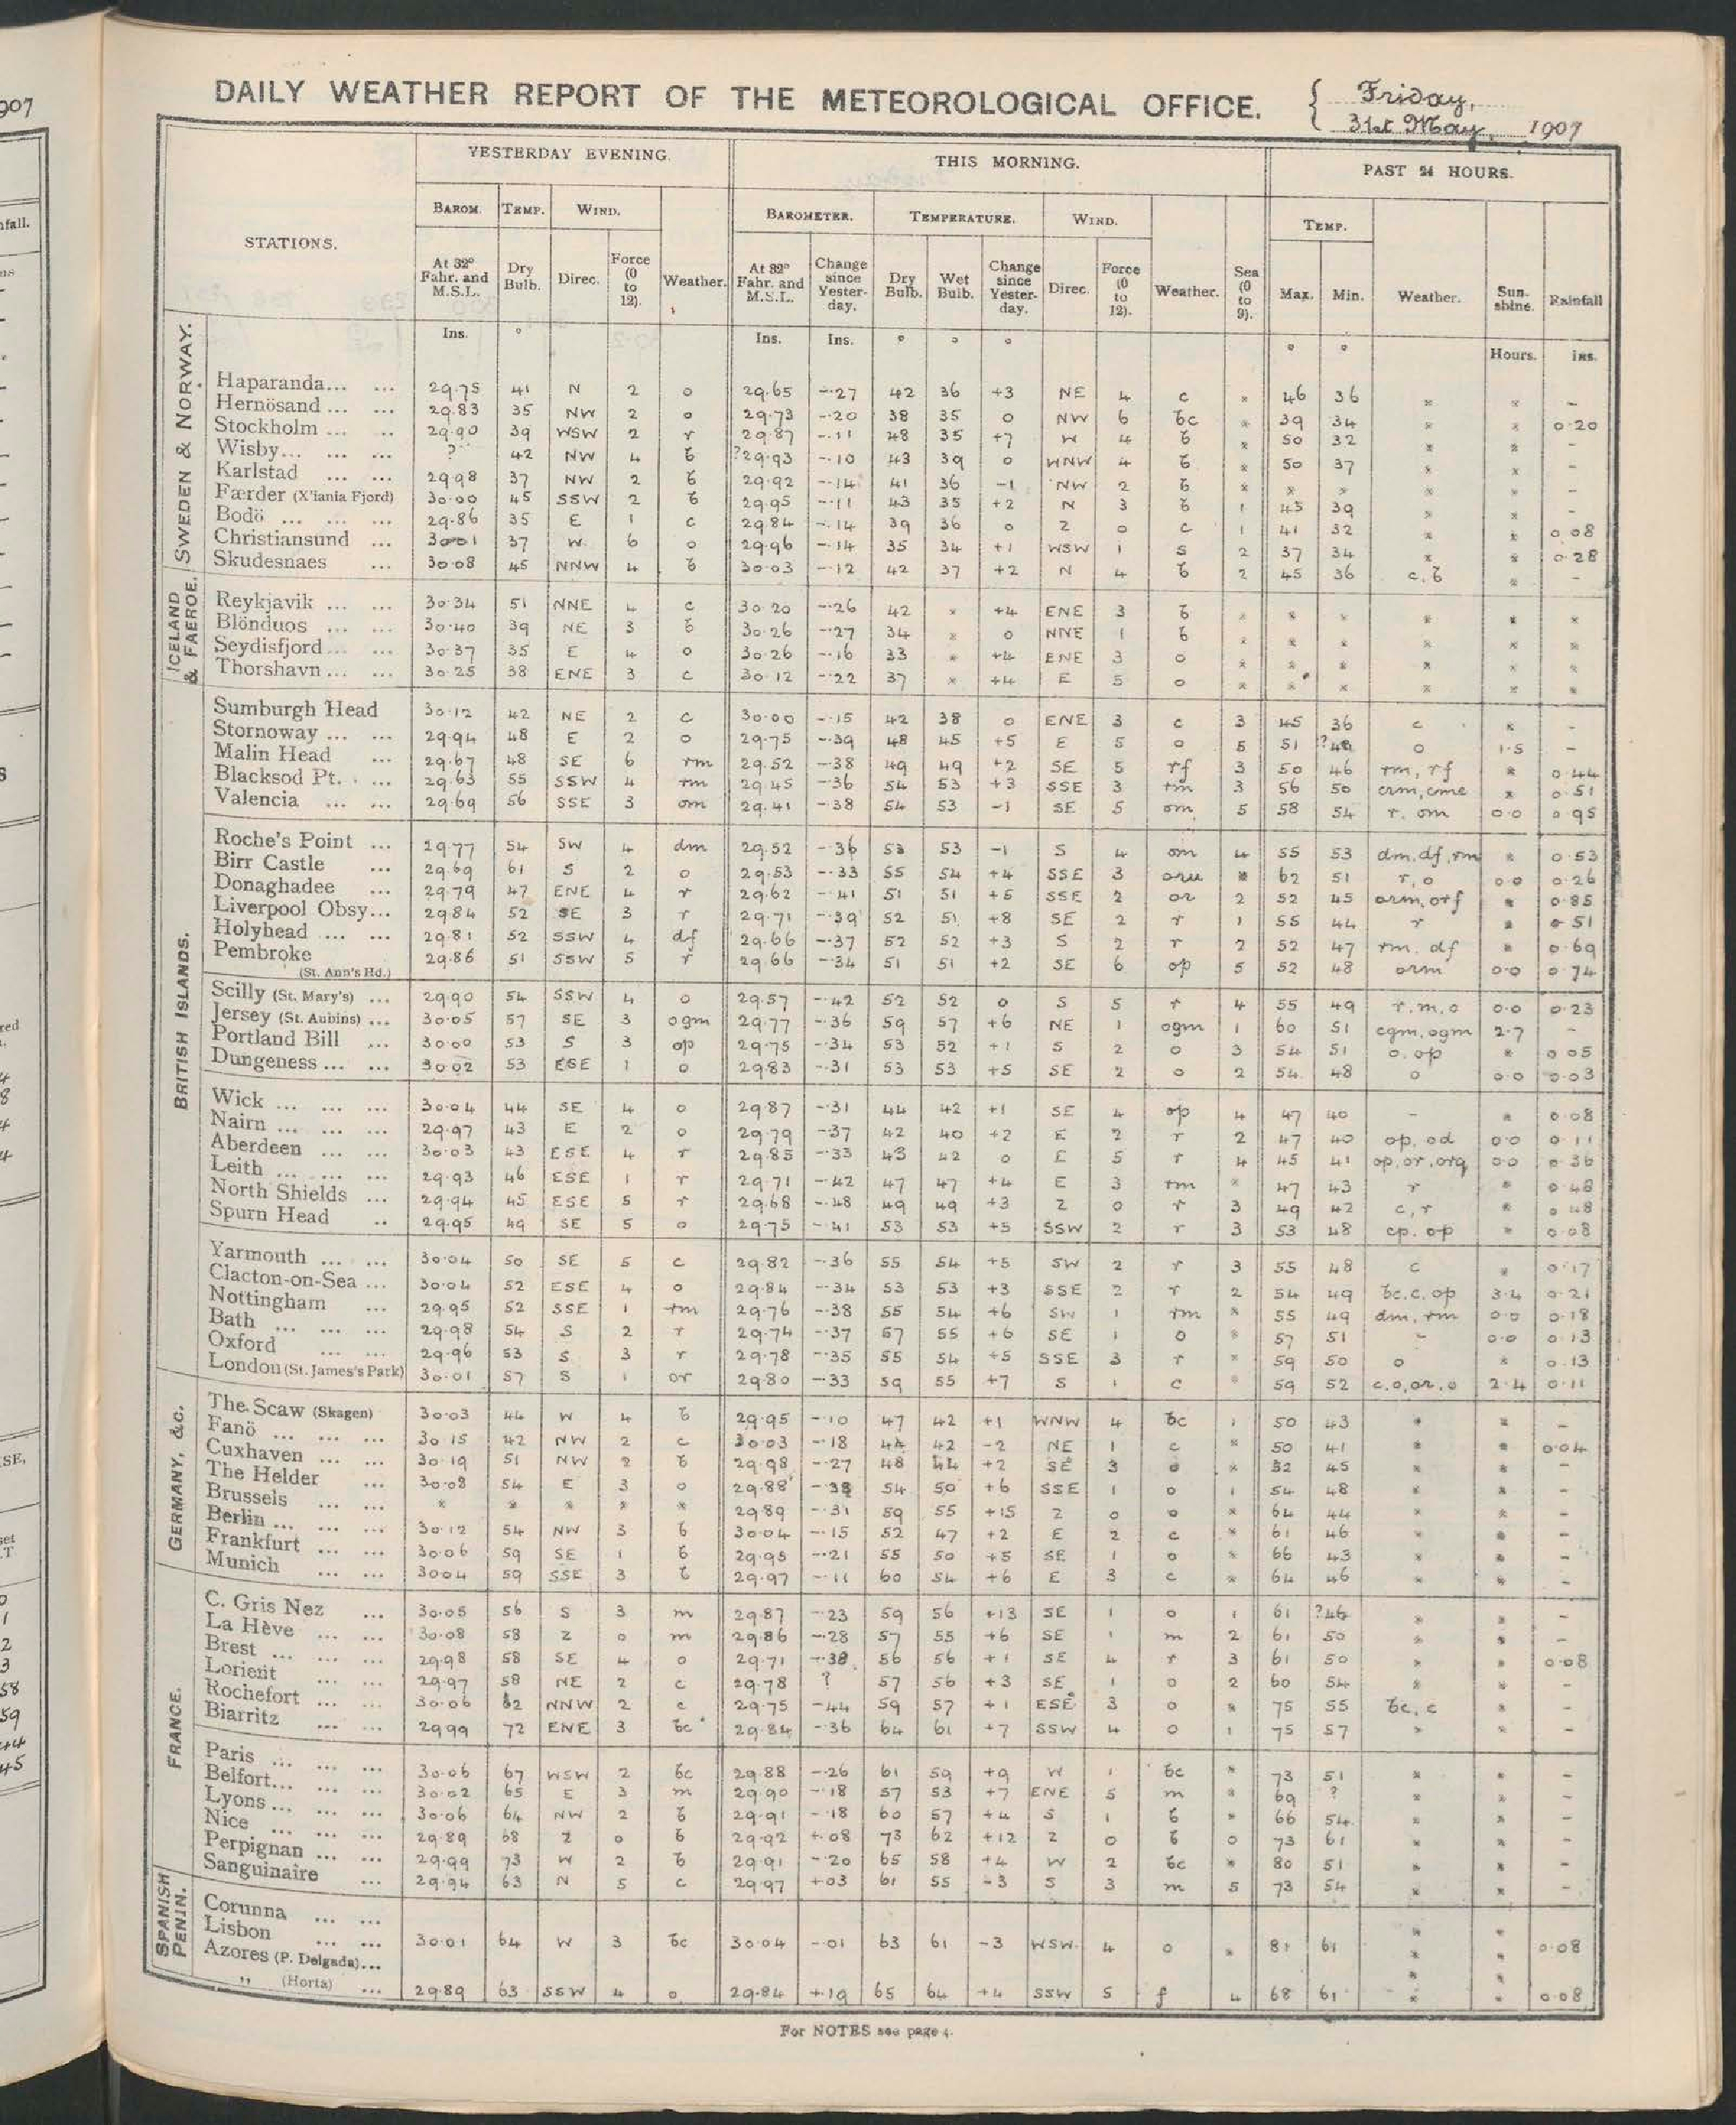 907
DAILY WEATHER REPORT OF THE METEOROLOGICAL OFFICE. { Friday, 31st May, 1907
STATIONS. YESTERDAY EVENING. THIS MORNING. PAST 24 HOURS.
BAROM. TEMP. WIND. BAROMETER. TEMPERATURE. WIND. TEMP.
At 32° Fahr. and M.S.L. Dry Bulb. Direc. Force (0 to 12). Weather. At 32° Fahr. and M.S.L. Change since Yesterday. Dry Bulb. Wet Bulb. Change since Yesterday. Direc. Force (0 to 12). Weather. Sea (0 to 9). Max. Min. Weather. Sunshine. Rainfall
Ins. ° Ins. Ins. ° ° ° ° ° Hours. ins.
SWEDEN & NORWAY.
Haparanda... ... 29.75 41 N 2 o 29.65 -.27 42 36 +3 NE 4 c * 46 36 * * -
Hernösand ... ... 29.83 35 NW 2 o 29.73 -.20 38 35 0 NW 6 bc * 39 34 * * 0.20
Stockholm ... .. 29.90 39 WSW 2 r 29.87 -.11 48 35 +7 W 4 b * 50 32 * * -
Wisby... ... ... ? 42 NW 4 b ?29.93 -.10 43 39 0 WNW 4 b * 50 37 * * -
Karlstad ... ... 29.98 37 NW 2 b 29.92 -.14 41 36 -1 NW 2 b * * * * * -
Færder (X'iania Fjord) 30.00 45 SSW 2 b 29.95 -.11 43 35 +2 N 3 b 1 45 39 * * -
Bodö ... ... ... 29.86 35 E 1 c 29.84 -.14 39 36 0 Z 0 c 1 41 32 * * 0.08
Christiansund ... 30.01 37 W 6 o 29.96 -.14 35 34 +1 WSW 1 s 2 37 34 * * 0.28
Skudesnaes ... 30.08 45 NNW 4 b 30.03 -.12 42 37 +2 N 4 b 2 45 36 c.b * -
ICELAND & FAEROE.
Reykjavik ... ... 30.34 51 NNE 4 c 30.20 -.26 42 * +4 ENE 3 b * * * * * *
Blönduos ... ... 30.40 39 NE 3 b 30.26 -.27 34 * 0 NNE 1 b * * * * * *
Seydisfjord ... ... 30.37 35 E 4 o 30.26 -.16 33 * +4 ENE 3 o * * * * * *
Thorshavn ... ... 30.25 38 ENE 3 c 30.12 -.22 37 * +4 E 5 o * * * * * *
BRITISH ISLANDS.
Sumburgh Head 30.12 42 NE 2 c 30.00 -.15 42 38 0 ENE 3 c 3 45 36 c * -
Stornoway ... ... 29.94 48 E 2 o 29.75 -.39 48 45 +5 E 5 o 5 51 o 1.5 -
Malin Head ... 29.67 48 SE 6 rm 29.52 -.38 49 49 +2 SE 5 rf 3 50 46 rm, rf * 0.44
Blacksod Pt. . ... 29.63 55 SSW 4 rm 29.45 -.36 54 53 +3 SSE 3 rm 3 56 50 crm, cme * 0.51
Valencia ... ... 29.69 56 SSE 3 om 29.41 -.38 54 53 -1 SE 5 om 5 58 54 r. om 0.0 0.95
Roche's Point ... 29.77 54 SW 4 dm 29.52 -.36 53 53 -1 S 4 om 4 55 53 dm, df, rm * 0.53
Birr Castle ... 29.69 61 S 2 o 29.53 -.33 55 54 +4 SSE 3 oru * 62 51 r, o 0.0 0.26
Donaghadee ... 29.79 47 ENE 4 r 29.62 -.41 51 51 +5 SSE 2 or 2 52 45 orm, orf * 0.85
Liverpool Obsy... 29.84 52 SE 3 r 29.71 -.39 52 51 +8 SE 2 r 1 55 44 r * 0.51
Holyhead ... ... 29.81 52 SSW 4 df 29.66 -.37 52 52 +3 S 2 r 2 52 47 rm. df * 0.69
Pembroke (St. Ann's Hd.) 29.86 51 SSW 5 r 29.66 -.34 51 51 +2 SE 6 op 5 52 48 orm 0.0 0.74
Scilly (St. Mary's) ... 29.90 54 SSW 4 o 29.57 -.42 52 52 0 S 5 r 4 55 49 r.m.o 0.0 0.23
Jersey (St. Aubins) ... 30.05 57 SE 3 ogm 29.77 -.36 59 57 +6 NE 1 ogm 1 60 51 cgm, ogm 2.7 -
Portland Bill ... 30.00 53 S 3 op 29.75 -.34 53 52 +1 S 2 o 3 54 51 o. op * 0.05
Dungeness ... ... 30.02 53 ESE 1 o 29.83 -.31 53 53 +5 SE 2 o 2 54 48 o 0.0 0.03
Wick ... ... ... 30.04 44 SE 4 o 29.87 -.31 44 42 +1 SE 4 op 4 47 40 - * 0.08
Nairn ... ... ... 29.97 43 E 2 o 29.79 -.37 42 40 +2 E 2 r 2 47 40 op, od 0.0 0.11
Aberdeen ... ... 30.03 43 ESE 4 r 29.85 -.33 43 42 0 E 5 r 4 45 41 op, or, orq 0.0 0.36
Leith ... ... ... 29.93 46 ESE 1 r 29.71 -.42 47 47 +4 E 3 rm * 47 43 r * 0.48
North Shields ... 29.94 45 ESE 5 r 29.68 -.48 49 49 +3 Z 0 r 3 49 42 c, r * 0.48
Spurn Head .. 29.95 49 SE 5 o 29.75 -.41 53 53 +5 SSW 2 r 3 53 48 cp. op * 0.08
Yarmouth ... ... 30.04 50 SE 5 c 29.82 -.36 55 54 +5 SW 2 r 3 55 48 c * 0.17
Clacton-on-Sea ... 30.04 52 ESE 4 o 29.84 -.34 53 53 +3 SSE 2 r 2 54 49 bc.c. op 3.4 0.21
Nottingham ... 29.95 52 SSE 1 rm 29.76 -.38 55 54 +6 SW 1 rm * 55 49 dm, rm 0.0 0.18
Bath ... ... ... 29.98 54 S 2 r 29.74 -.37 57 55 +6 SE 1 o * 57 51 - 0.0 0.13
Oxford ... ... 29.96 53 S 3 r 29.78 -.35 55 54 +5 SSE 3 r * 59 50 o * 0.13
London (St. James's Park) 30.01 57 S 1 or 29.80 -.33 59 55 +7 S 1 c * 59 52 c.o, or. o 2.4 0.11
GERMANY, &c.
The Scaw (Skagen) 30.03 44 W 4 b 29.95 -.10 47 42 +1 WNW 4 bc 1 50 43 * * -
Fanö ... ... ... 30.15 42 NW 2 c 30.03 -.18 44 42 -2 NE 1 c * 50 41 * * 0.04
Cuxhaven ... ... 30.19 51 NW 2 b 29.98 -.27 48 44 +2 SE 3 o * 52 45 * * -
The Helder ... 30.08 54 E 3 o 29.88 -.38 54 50 +6 SSE 1 o 1 54 48 * * -
Brussels ... ... * * * * * 29.89 -.31 59 55 +15 Z 0 o * 64 44 * * -
Berlin ... ... ... 30.12 54 NW 3 b 30.04 -.15 52 47 +2 E 2 c * 61 46 * * -
Frankfurt ... ... 30.06 59 SE 1 b 29.95 -.21 55 50 +5 SE 1 o * 66 43 * * -
Munich ... ... 30.04 59 SSE 3 b 29.97 -.11 60 54 +6 E 3 c * 64 46 * * -
FRANCE.
C. Gris Nez ... 30.05 56 S 3 m 29.87 -.23 59 56 +13 SE 1 o 1 61 ?46 * * -
La Hève ... ... 30.08 58 Z 0 m 29.86 -.28 57 55 +6 SE 1 m 2 61 50 * * -
Brest ... ... ... 29.98 58 SE 4 o 29.71 -.38 56 56 +1 SE 4 r 3 61 50 * * 0.08
Lorient ... ... 29.97 58 NE 2 c 29.78 ? 57 56 +3 SE 1 o 2 60 54 * * -
Rochefort ... ... 30.06 62 NNW 2 c 29.75 -.44 59 57 +1 ESE 3 o * 75 55 bc, c * -
Biarritz ... ... 29.99 72 ENE 3 bc 29.84 -.36 64 61 +7 SSW 4 o 1 75 57 * * -
Paris ... ... ... 30.06 67 WSW 2 bc 29.88 -.26 61 59 +9 W 1 bc * 73 51 * * -
Belfort... ... ... 30.02 65 E 3 m 29.90 -.18 57 53 +7 ENE 5 m * 69 ? * * -
Lyons ... ... ... 30.06 64 NW 2 b 29.91 -.18 60 57 +4 S 1 b * 66 54 * * -
Nice ... ... ... 29.89 68 Z 0 b 29.92 +.08 73 62 +12 Z 0 b 0 73 61 * * -
Perpignan ... ... 29.99 73 W 2 b 29.91 -.20 65 58 +4 W 2 bc * 80 51 * * -
Sanguinaire ... 29.94 63 N 5 c 29.97 +.03 61 55 -3 S 3 m 5 73 54 * * -
SPANISH PENIN.
Corunna ... ... * *
Lisbon ... ... 30.01 64 W 3 bc 30.04 -.01 63 61 -3 WSW 4 o * 81 61 * * 0.08
Azores (P. Delgada)... * *
" (Horta) ... 29.89 63 SSW 4 o 29.84 +.19 65 64 +4 SSW 5 f 4 68 61 * * 0.08
For NOTES see page 4.